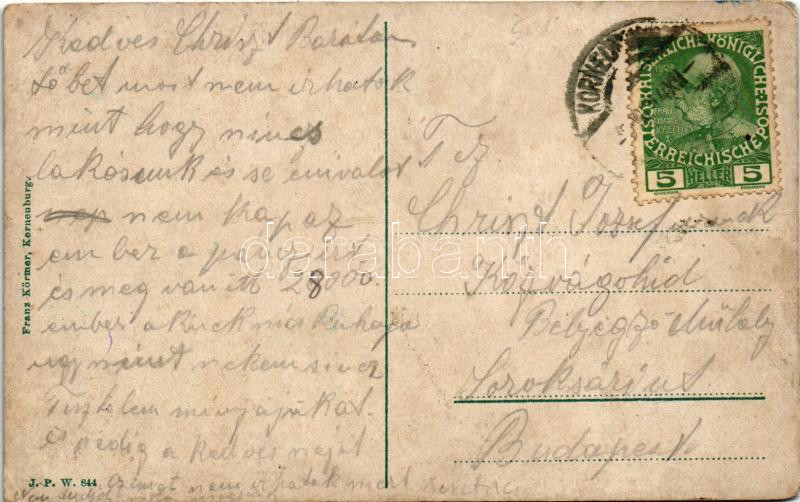 Kedves Christ Barátom
többet most nem irhatok
mint hogy nincs
lakásunk és se ennivalot
nem kap az
em ber a pénzért
és meg van itt 28000
ember akinek nincs Ruhája
ugy mint nekem sincs
Tisztelem mindjájukat
és pedig a kedves nejét
Czimet nem irhatok mert
Franz Körmer, Korneuburg.
J. P. W. 844
KORNEU
KAISERLICHE KÖNIGLICHE
ÖSTERREICHISCHE POST
5 HELLER 5
T cz.
Christ József
Közvágohid
Bélyegző Műhely
Soroksári ut
Budapest
darabanth